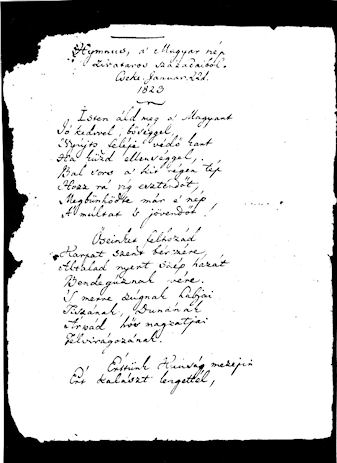 Hymnus, a' Magyar nép
zivataros századaiból.
Cseke. Januar. 22d.
1823
Isten áldd meg a' Magyart
Jó kedvvel, bőséggel,
Nyújts feléje védő kart
Ha küzd ellenséggel,
Bal sors a' kit régen tép
Hozz rá víg esztendőt,
Megbünhödte már e' nép
A' multat 's jövendőt!
Őseinket felhozád
Kárpát szent bérczére,
Általad nyert szép hazát
Bendegúznak vére.
'S merre zúgnak habjai
Tiszának, Dunának
Árpád hős magzatjai
Felvirágozának.
Értünk Kunság mezején
Ért kalászt lengettél,